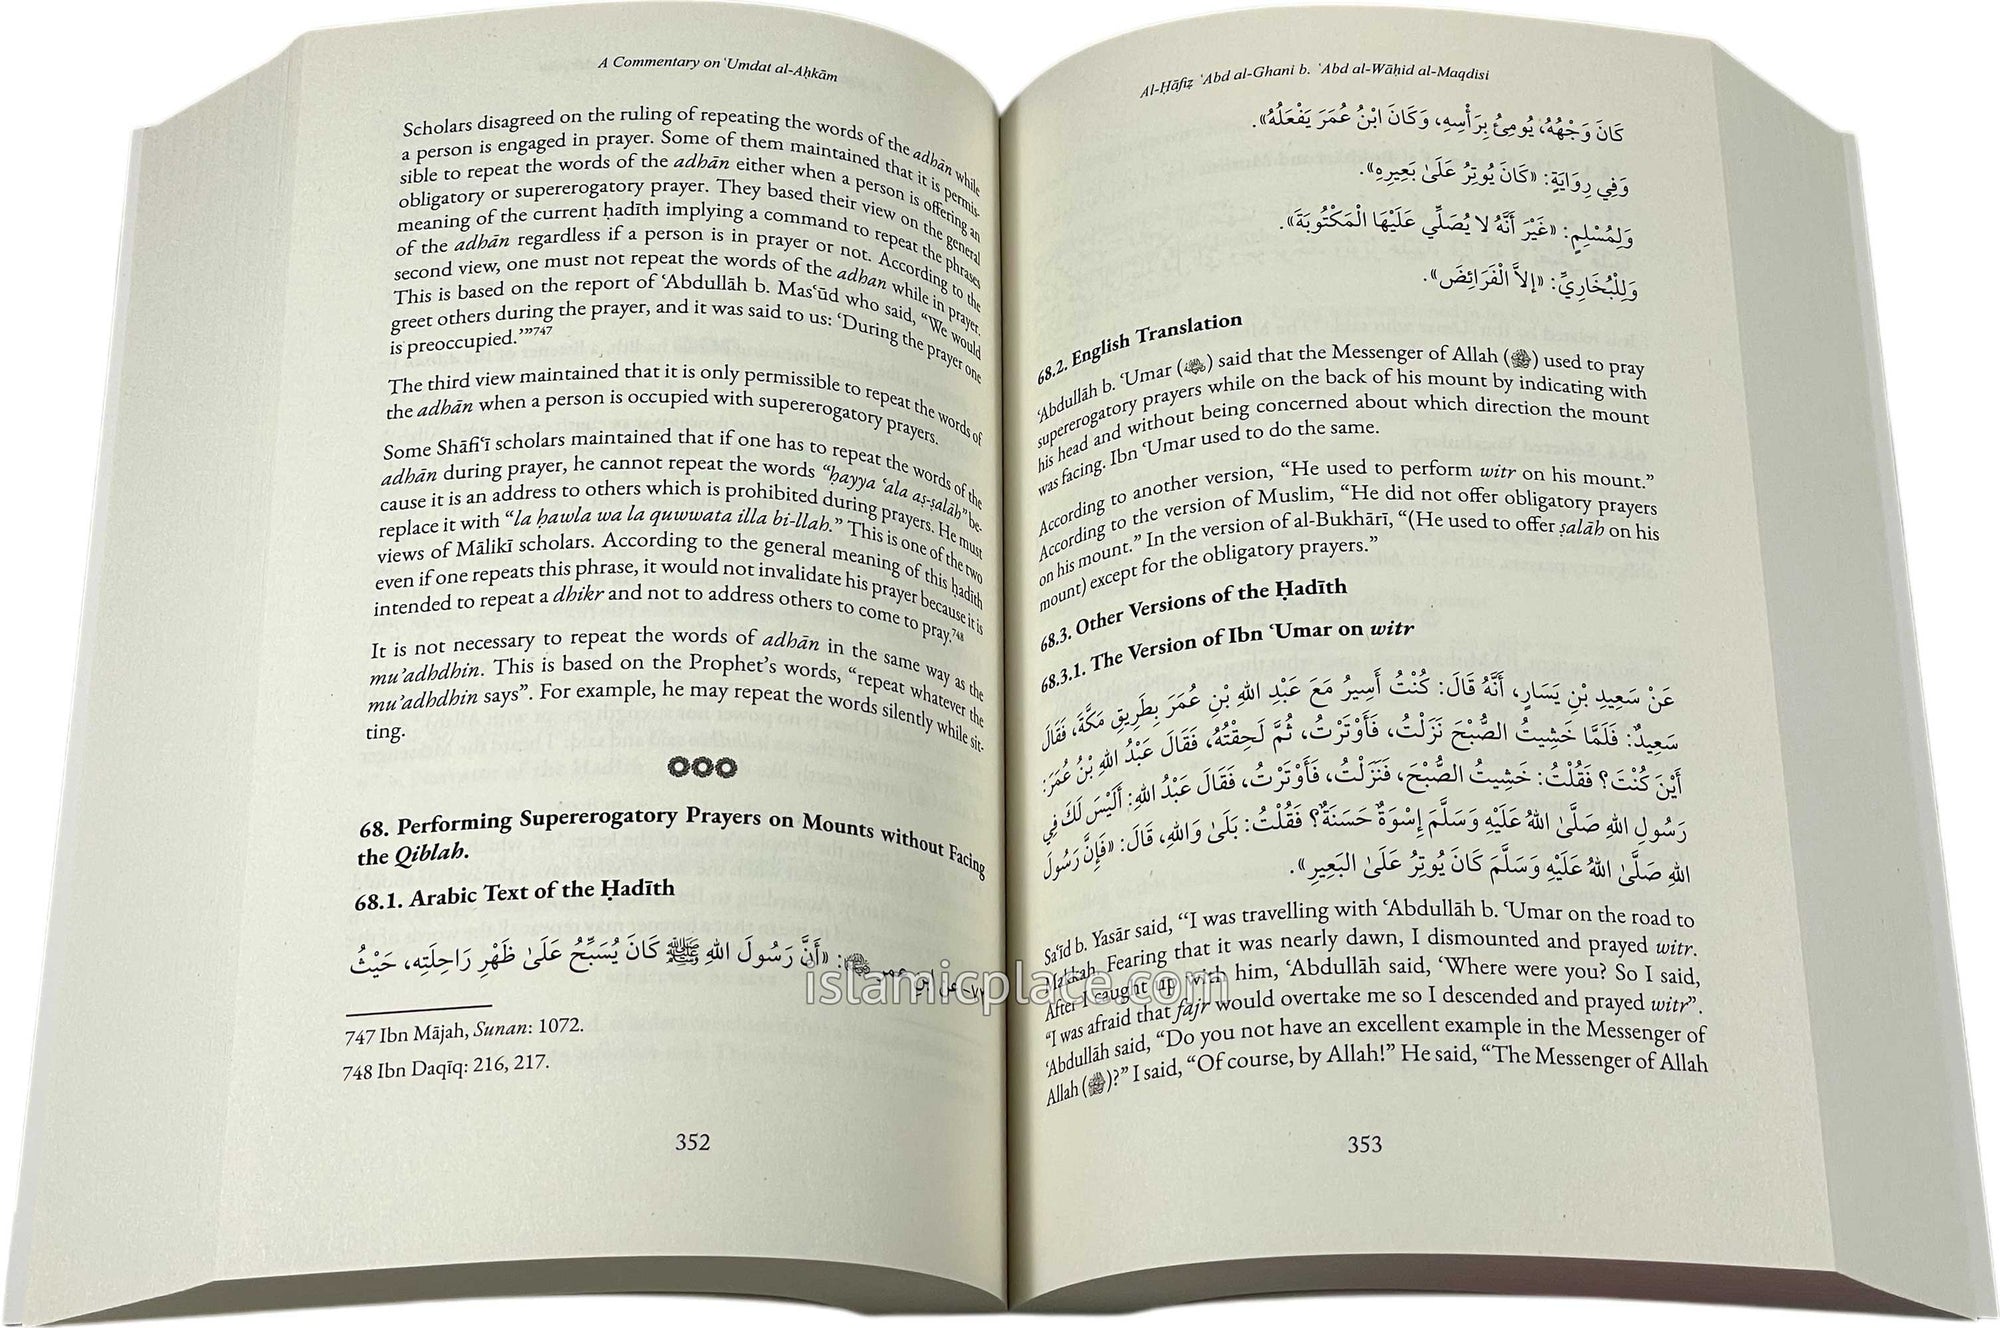 A Commentary on ʿUmdat al-Aḥkām
Scholars disagreed on the ruling of repeating the words of the adhān while
a person is engaged in prayer. Some of them maintained that it is permis-
sible to repeat the words of the adhān either when a person is offering an
obligatory or supererogatory prayer. They based their view on the general
meaning of the current ḥadīth implying a command to repeat the phrases
of the adhān regardless if a person is in prayer or not. According to the
second view, one must not repeat the words of the adhan while in prayer.
This is based on the report of ʿAbdullāh b. Masʿūd who said, “We would
greet others during the prayer, and it was said to us: ‘During the prayer one
is preoccupied.’”747
The third view maintained that it is only permissible to repeat the words of
the adhān when a person is occupied with supererogatory prayers.
Some Shāfiʿī scholars maintained that if one has to repeat the words of the
adhān during prayer, he cannot repeat the words “ḥayya ʿala aṣ-ṣalāh” be-
cause it is an address to others which is prohibited during prayers. He must
replace it with “la ḥawla wa la quwwata illa bi-llah.” This is one of the two
views of Mālikī scholars. According to the general meaning of this ḥadith
even if one repeats this phrase, it would not invalidate his prayer because it is
intended to repeat a dhikr and not to address others to come to pray.748
It is not necessary to repeat the words of adhān in the same way as the
mu’adhdhin. This is based on the Prophet’s words, “repeat whatever the
mu’adhdhin says”. For example, he may repeat the words silently while sit-
ting.
68. Performing Supererogatory Prayers on Mounts without Facing
the Qiblah.
68.1. Arabic Text of the Ḥadīth
٧٢- عن ابن عمر ﷺ: «أَنَّ رَسُولَ اللهِ ﷺ كَانَ يُسَبِّحُ عَلَىٰ ظَهْرِ رَاحِلَتِهِ، حَيْثُ
747 Ibn Mājah, Sunan: 1072.
748 Ibn Daqīq: 216, 217.
352
Al-Ḥāfiẓ ʿAbd al-Ghani b. ʿAbd al-Wāḥid al-Maqdisi
كَانَ وَجْهُهُ، يُومِئُ بِرَأْسِهِ، وَكَانَ ابْنُ عُمَرَ يَفْعَلُهُ».
وَفِي رِوَايَةٍ: «كَانَ يُوتِرُ عَلَىٰ بَعِيرِهِ».
وَلِمُسْلِمٍ: «غَيْرَ أَنَّهُ لا يُصَلِّي عَلَيْهَا الْمَكْتُوبَةَ».
وَلِلْبُخَارِيِّ: «إلاَّ الْفَرَائِضَ».
68.2. English Translation
ʿAbdullāh b. ʿUmar (ﷺ) said that the Messenger of Allah (ﷺ) used to pray
supererogatory prayers while on the back of his mount by indicating with
his head and without being concerned about which direction the mount
was facing. Ibn ʿUmar used to do the same.
According to another version, “He used to perform witr on his mount.”
According to the version of Muslim, “He did not offer obligatory prayers
on his mount.” In the version of al-Bukhārī, “(He used to offer ṣalāh on his
mount) except for the obligatory prayers.”
68.3. Other Versions of the Ḥadīth
68.3.1. The Version of Ibn ʿUmar on witr
عَنْ سَعِيدِ بْنِ يَسَارٍ، أَنَّهُ قَالَ: كُنْتُ أَسِيرُ مَعَ عَبْدِ اللهِ بْنِ عُمَرَ بِطَرِيقِ مَكَّةَ، فَقَالَ
سَعِيدٌ: فَلَمَّا خَشِيتُ الصُّبْحَ نَزَلْتُ، فَأَوْتَرْتُ، ثُمَّ لَحِقْتُهُ، فَقَالَ عَبْدُ اللهِ بْنُ عُمَرَ:
أَيْنَ كُنْتَ؟ فَقُلْتُ: خَشِيتُ الصُّبْحَ، فَنَزَلْتُ، فَأَوْتَرْتُ، فَقَالَ عَبْدُ اللهِ: أَلَيْسَ لَكَ فِي
رَسُولِ اللهِ صَلَّىٰ اللهُ عَلَيْهِ وَسَلَّمَ إِسْوَةٌ حَسَنَةٌ؟ فَقُلْتُ: بَلَىٰ وَاللهِ، قَالَ: «فَإِنَّ رَسُولَ
اللهِ صَلَّىٰ اللهُ عَلَيْهِ وَسَلَّمَ كَانَ يُوتِرُ عَلَىٰ البَعِيرِ».
Saʿīd b. Yasār said, “I was travelling with ʿAbdullāh b. ʿUmar on the road to
Makkah. Fearing that it was nearly dawn, I dismounted and prayed witr.
After I caught up with him, ʿAbdullāh said, ‘Where were you? So I said,
“I was afraid that fajr would overtake me so I descended and prayed witr”.
ʿAbdullāh said, “Do you not have an excellent example in the Messenger of
Allah (ﷺ)?” I said, “Of course, by Allah!” He said, “The Messenger of Allah
353
islamicplace.com